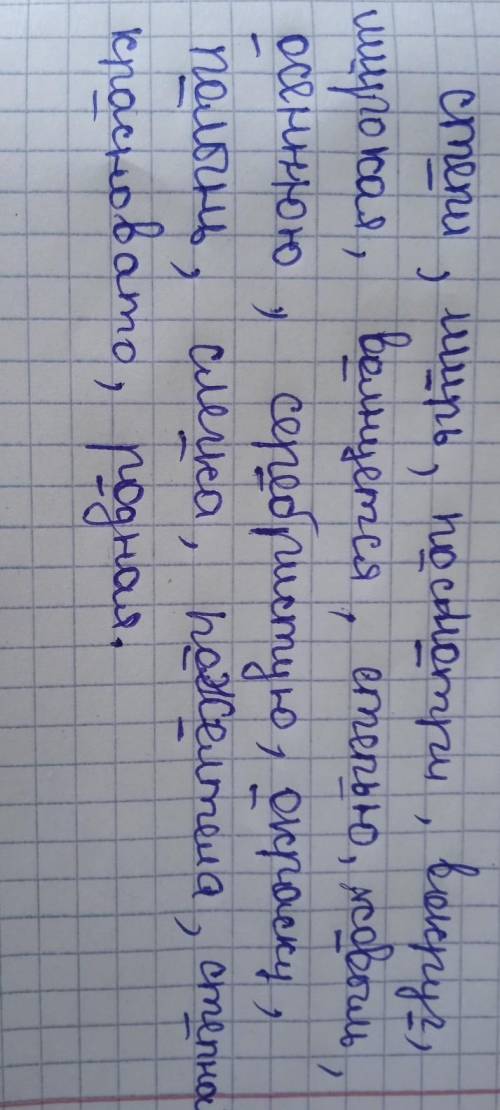 степи, ширь, посмотри, вокруг,
широкая, волнуется, степью, ковыль,
осеннюю, серебристую, окраску,
полынь, слегка, пожелтела, степна
красновато, родная.